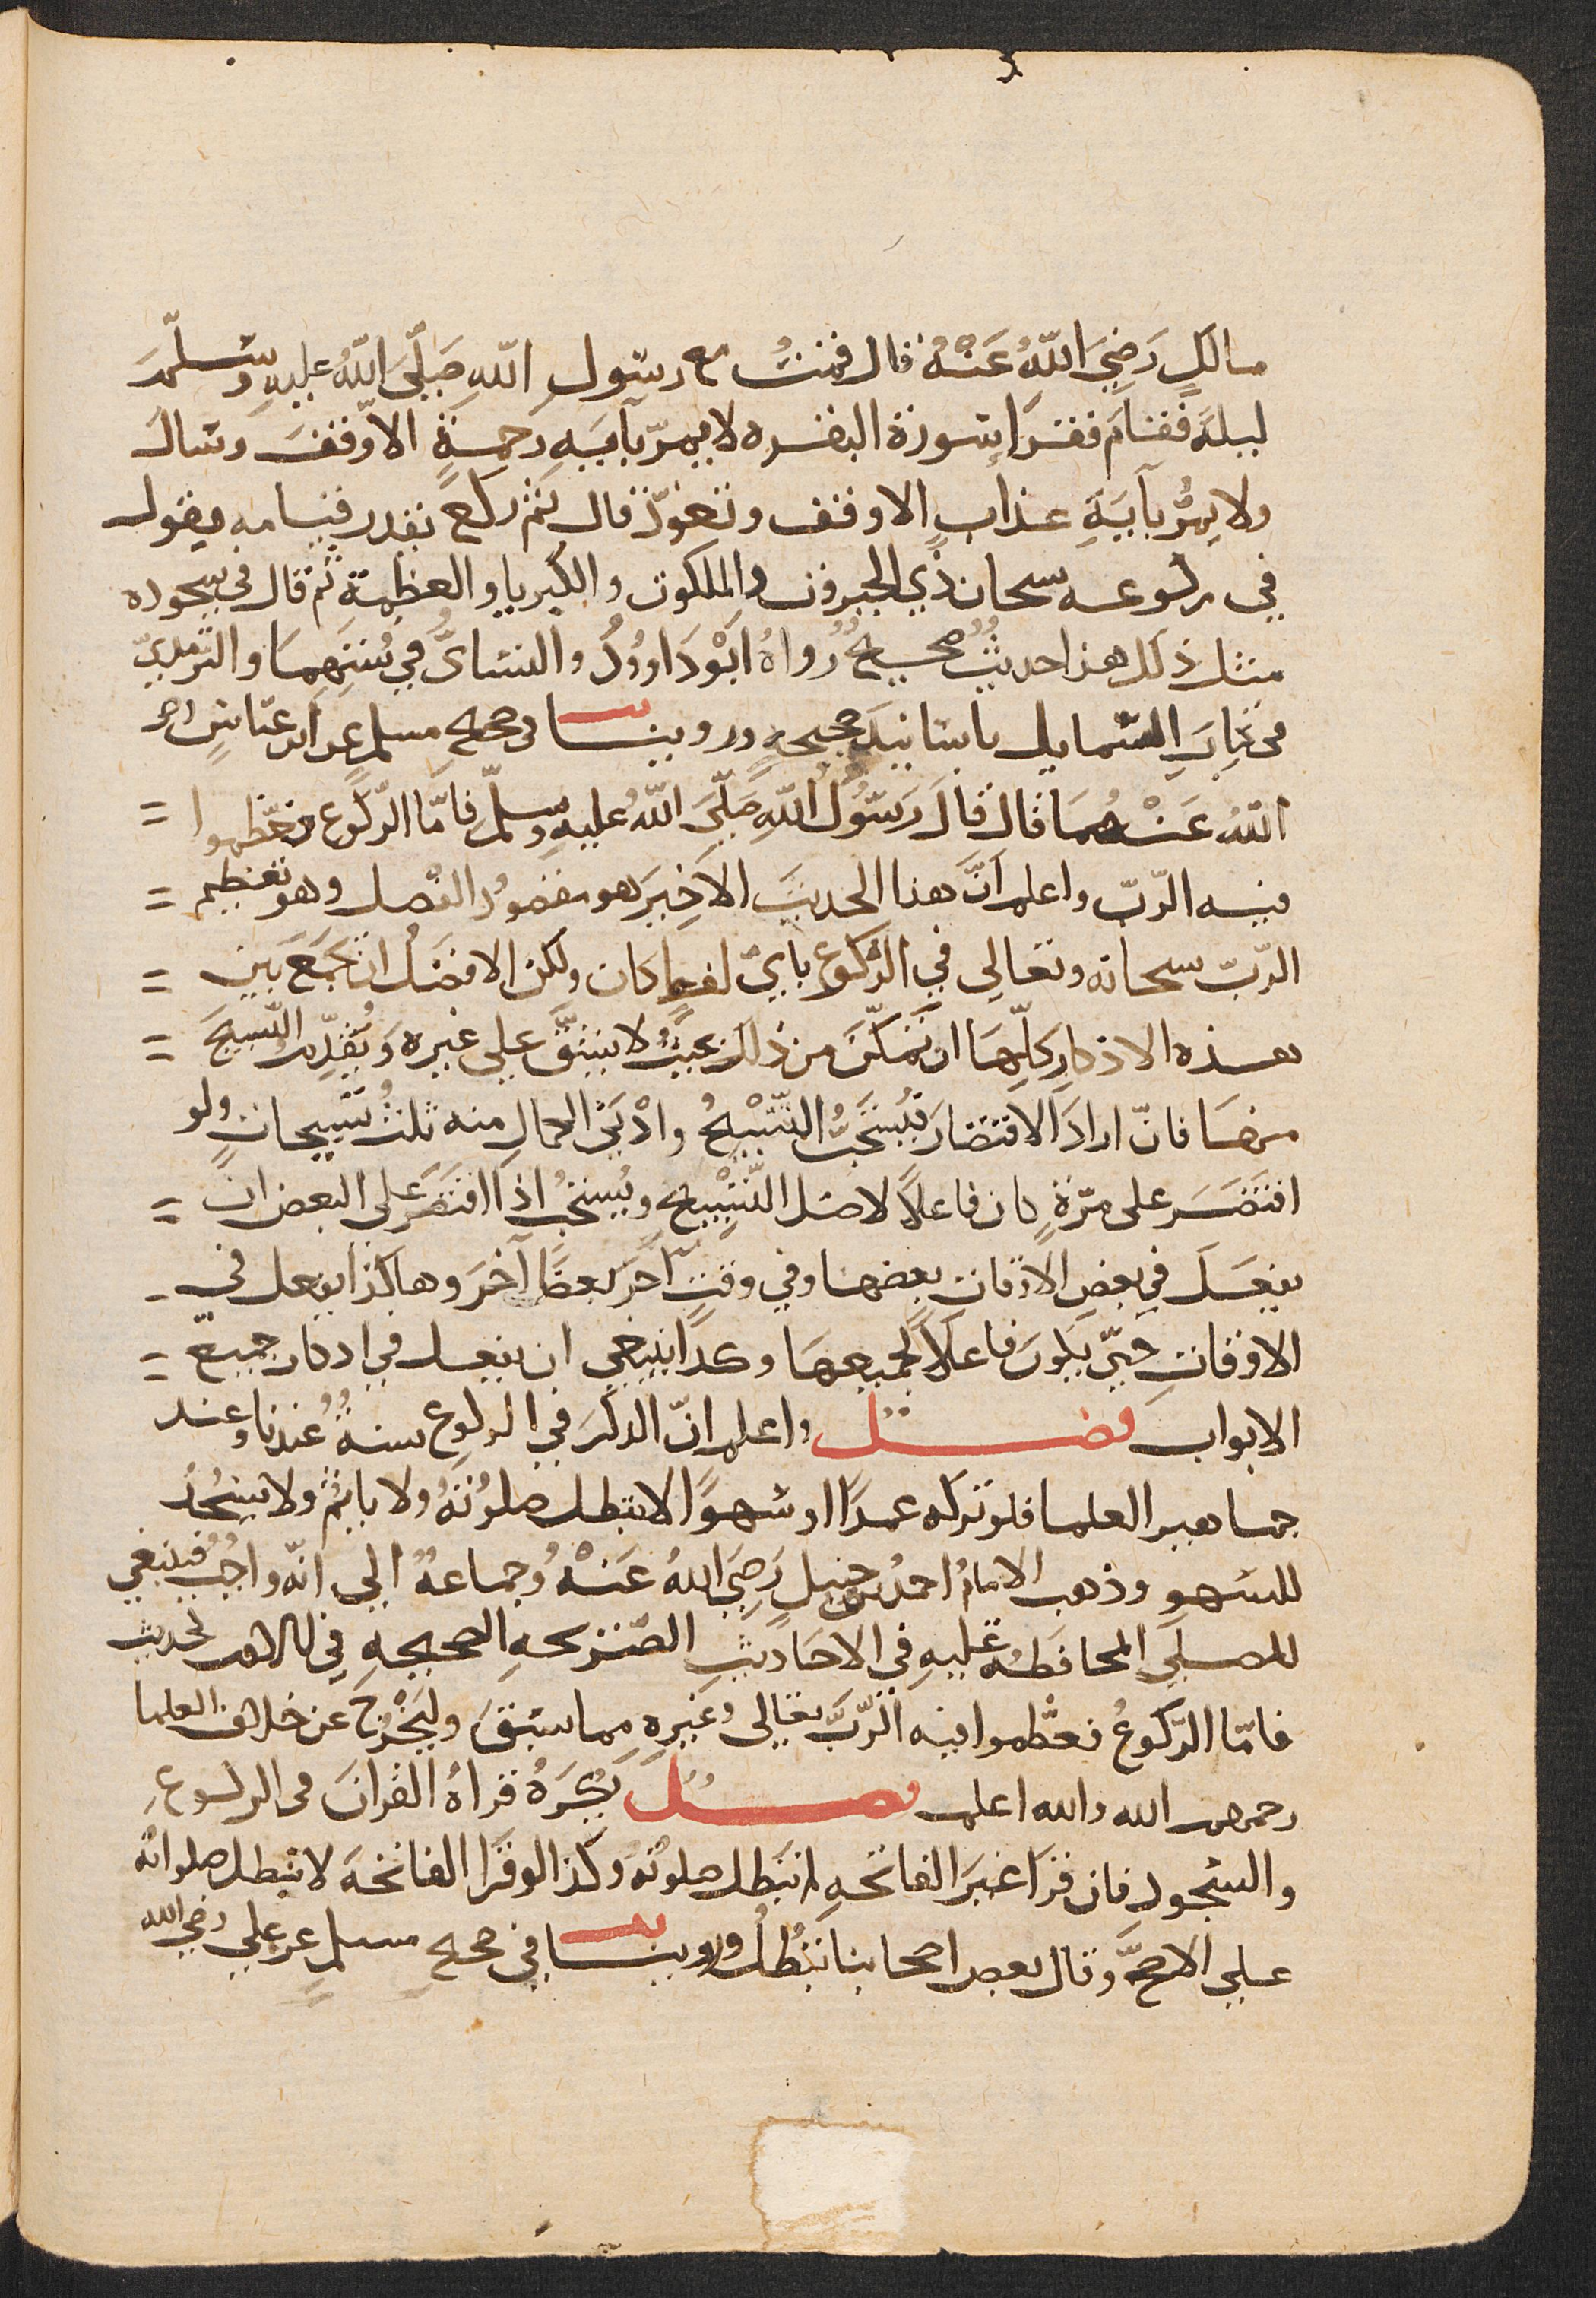 مالكٍ رَضِيَ اللّهُ عَنْهُ قال قمتُ مع رسُولِ اللّهِ صَلّيَ اللّهُ عليهِ وسلّمَ
ليلةً فقامَ فقرَا سُورَةَ البقره لا يمرّ بآيَةِ رحمةٍ الا وقفَ وسَالَ
ولا يمُرّ بآيَةِ عذابٍ الا وقف وتعوّذ قال ثم ركعَ بقدر قيامه يقول
في ركوعه سبحان ذي الجبروت والملكوت والكبريا والعظمة ثم قال في سجوده
مثل ذلك هذا حديثٌ صحيحٌ رواهُ ابُوْ دَاوُودُ والنسَائيُّ في سُننِهمَا والترمذيّ
في كتابِ الشمايل باسَانيدَ صحيحةٍ وروينا في صحيح مسلم عن ابن عبّاسٍ رضي
اللهُ عَنْهُمَا قال قالَ رَسُولُ اللّهِ صَلّيَ اللّهُ عليهِ وسلّمَ فامّا الرّكوع فعظّموا
فيه الرّبّ واعلم انَّ هذا الحديثَ الاخِيرَ هو مقصُودُ الفصل وهو تعظيم
الرّبّ سبحانه وتعالي في الرّكوع بايّ لفظٍ كان ولكن الافضَلُ ان يجمَعَ بَين
هذه الاذكارِ كلّهَا ان تمَكّنَ من ذلك بحيثُ لا يشقُّ علي غيره وَيُقدِّمُ التّسبيحَ
منهَا فانّ ارادَ الاقتصَارَ فيُستَحَبُّ التّسْبِيْحُ وادْنَي الكمالِ منه ثلثُ تسبيحاتٍ ولو
اقتصَرَ على مرّةٍ كان فاعلاً لاصل التّسْبِيْحِ ويُستحبُّ اذا اقتصَرَ علي البعض ان
يفعَلَ في بعضِ الاوقاتِ بعضهَا وفي وقتٍ آخَرَ بعضًا آخَرَ وهاكذا يفعل في
الاوقاتِ حتّي يكونَ فاعلاً لجميعهَا وكذا ينبغي ان يفعل في اذكار جميع
الابواب فصْلٌ واعلم انّ الذكرَ في الركوع سنةٌ عندنا وعند
جماهير العلما فلو تركه عمدًا او سَهوًا لا تبطل صلوتُهُ ولا ياثمُ ولا يَسْجُدُ
للسَهو وذهب الامامُ احمدُ بن حنبلٍ رَضِيَ اللهُ عَنْهُ وجماعةٌ الي انّه واجبٌ فينبغي
للمصلّي المحافَظةُ عليهِ في الاحَاديثِ الصّريحهِ الصحيحهِ في الامر لحديث
فامّا الرّكوعُ فعظّموا فيه الرّبَّ تعالي وغيره مما سَبَقَ وليَخْرُجَ عن خلاف العلما
رحمهم الله والله اعلم فصْلٌ يُكرَهُ قراةُ القرآنَ في الركوعِ
والسّجودِ فان قرَا غيرَ الفاتحهِ لم تبطل صلوتُهُ وكذا لو قرَا الفاتحهَ لا تبطل صلواتُه
علي الاصحِّ وقال بعض اصحابنا تَبْطُلُ وروينا في صحيح مسلمٍ عن علي رضي الله